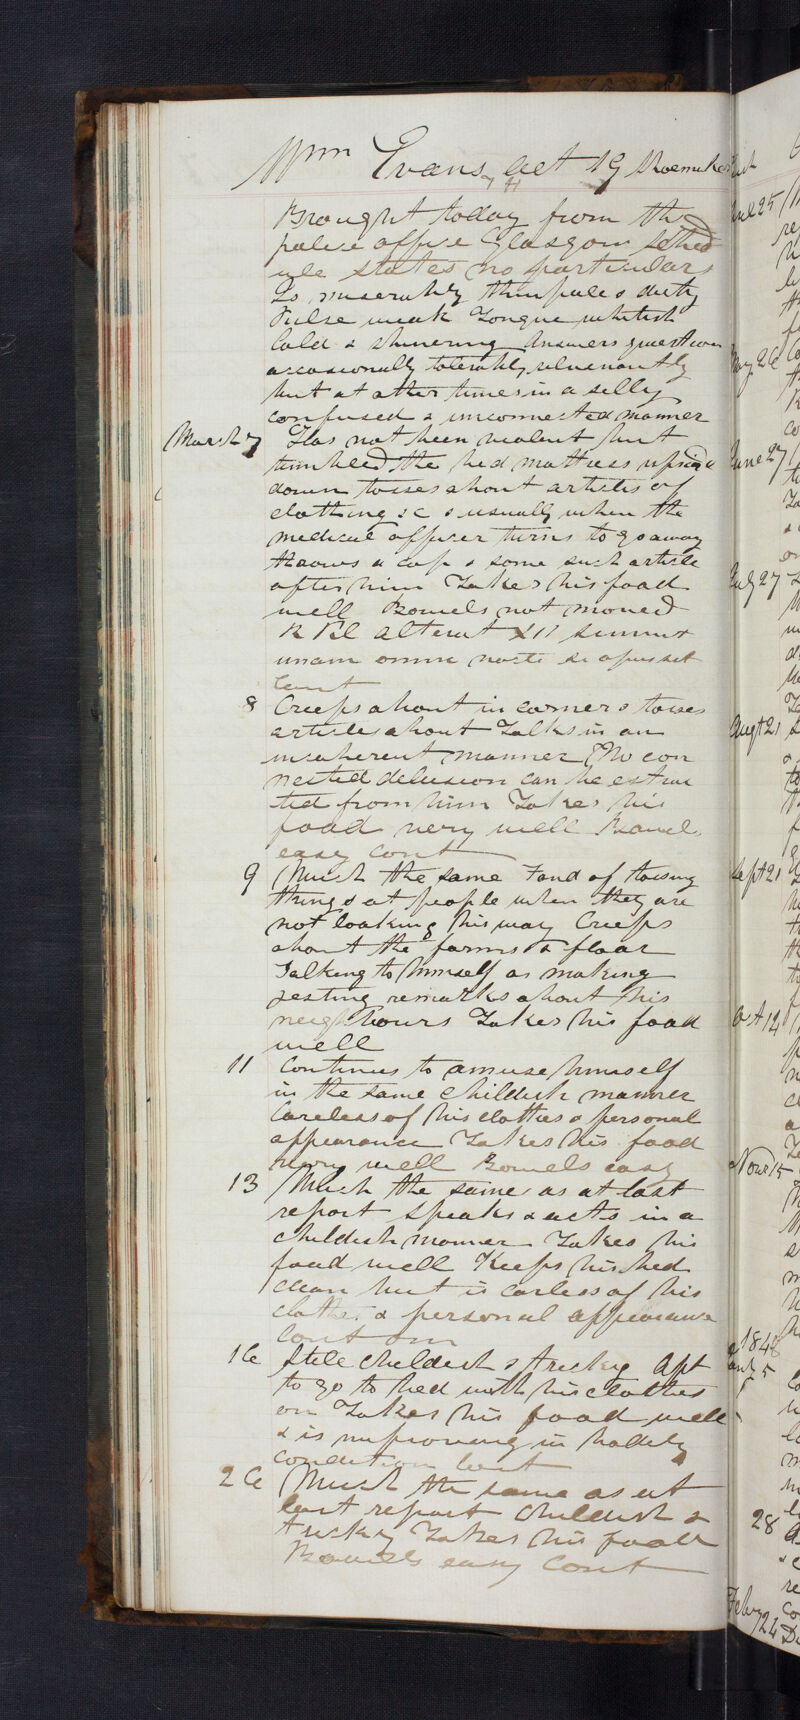 Wm Evans aet 19 Shoemaker
Brought today from the
police office Glasgow Sched
ule states no particulars
Is miserably thin pale & dirty
Pulse weak Tongue whitish
Cold & shivering Answers questions
occasionally tolerably
but at other times in a silly
confused & unconnected manner
March 7 Has not been violent but
tumbled the bed mattress upside
down tosses about articles of
clothing &c & usually when the
medical officer turns to go away
throws a cap & some such article
after him Takes his food
well Bowels not moved
unam omni nocte si opus sit
Cont
8 Creeps about in corners & tosses
articles about Talks in an
incoherent manner No con
nected delusion can be extrac
ted from him Takes his
food very well Bowels
easy Cont
9 Much the same Fond of tossing
things at people when they are
not looking his way Creeps
about the forms & floor
Talking to himself or making
jesting remarks about his
neighbours Takes his food
well
11 Continues to amuse himself
in the same childish manner
Careless of his clothes & personal
appearance Takes his food
very well Bowels easy
13 Much the same as at last
report Speaks & acts in a
childish manner Takes his
food well Keeps his bed
clean but is careless of his
clothes & personal appearance
Cont om
16 Still childish & tricky Apt
to go to bed with his clothes
on Takes his food well
& is improving in bodily
condition Cont
26 Much the same as at
last report Childish &
tricky Takes his food
Bowels easy Cont
May 26
June 27
July 27
Augt 21
Sept 21
Oct 14
Novr 15
1848
28
Feby 24